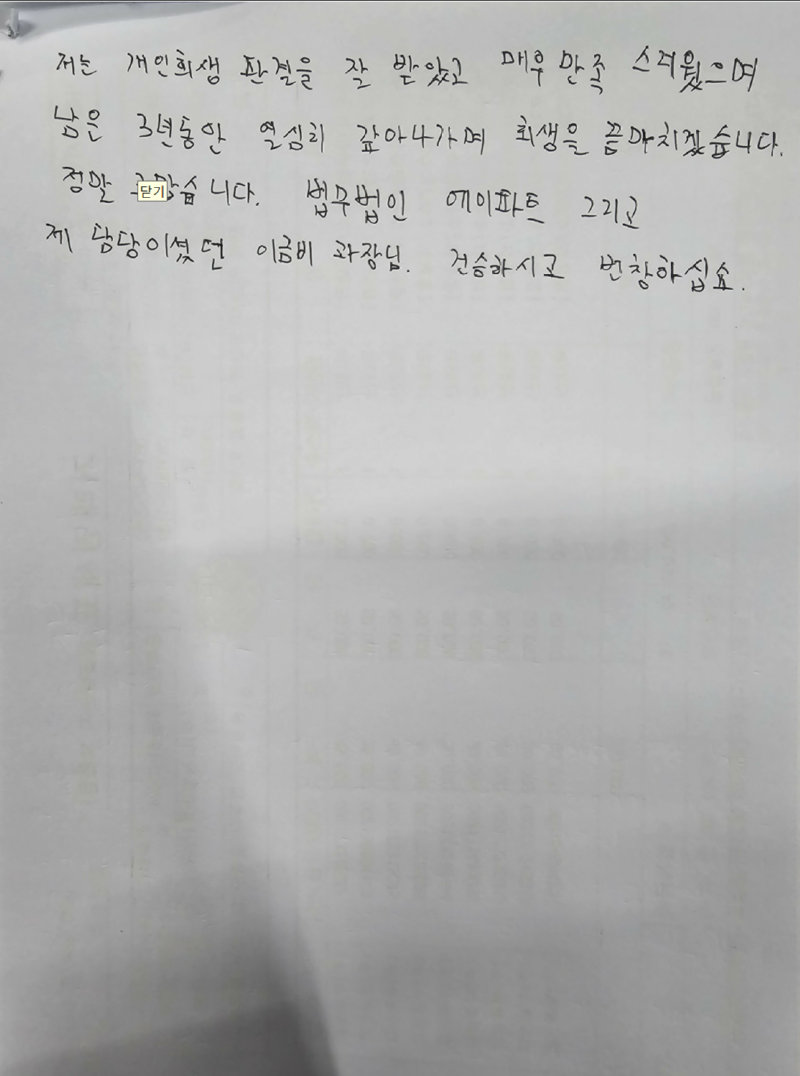 저는 개인회생 판결을 잘 받았고 매우 만족 스러웠으며
남은 3년동안 열심히 갚아나가며 회생을 끝마치겠습니다.
정말 고맙습니다. 법무법인 에이파트 그리고
제 담당이셨던 이금비 과장님. 건승하시고 번창하십쇼.
닫기